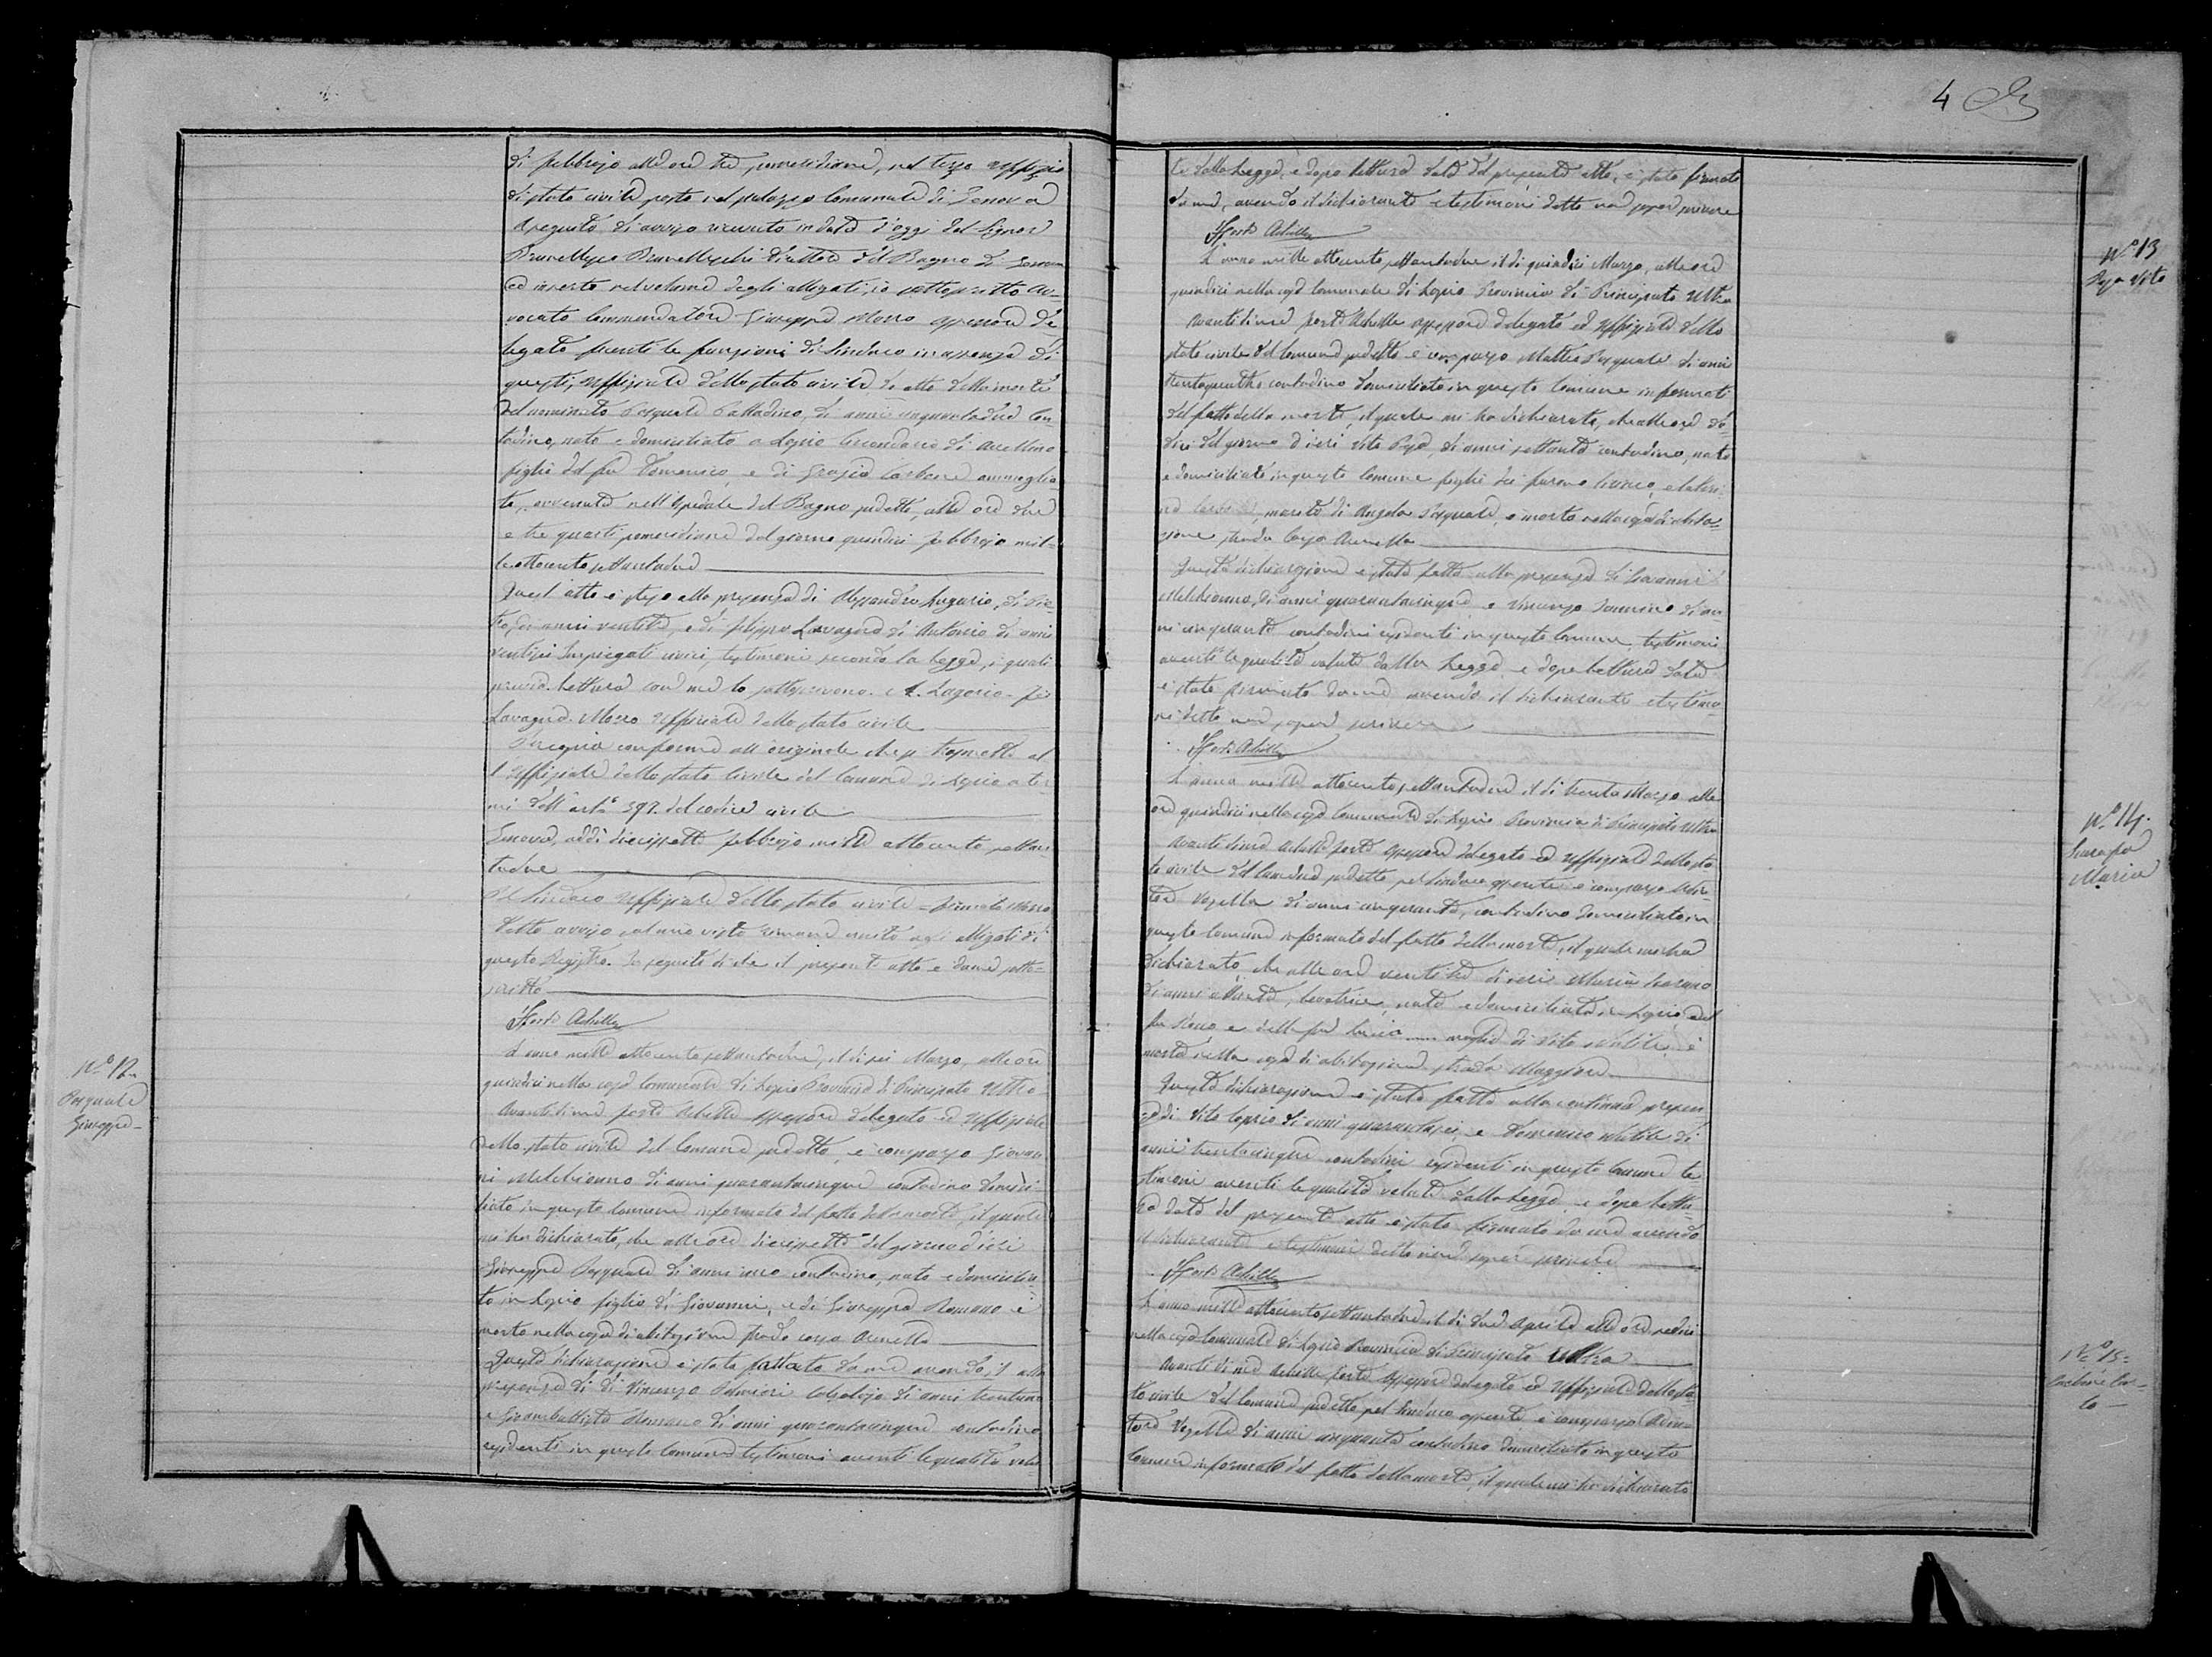 4
di febbrajo alle ore tre pomeridiane, nel terzo uffizio
di stato civile posto nel palazzo Comunale di Genova
A seguito di avviso ricevuto in data d'oggi dal Signor
Direttore del Bagno di Genova
ed inserto nel volume degli allegati, io sottoscritto Av-
vocato Commendatore Giuseppe Morro assessore de-
legato facenti le funzioni di Sindaco in assenza di
questi, uffiziale dello stato civile do atto della morte
del nominato Pasquale Palladino, di anni cinquantadue Con-
tadino, nato e domiciliato a Lapio Circondario di Avellino
figlio del fu Domenico, e di Grazia Carbone ammoglia-
to, avvenuta nell'Ospedale del Bagno sudetto, alle ore due
e tre quarti pomeridiane del giorno quindici febbrajo mil-
leottocentosettantadue
Quest'atto è steso alla presenza di Alessandro Lagorio, di Pie-
tro, di anni ventitre, e di Filippo Lavagna di Antonio di anni
ventisei Impiegati civici, testimoni secondo la legge, i quali
previa lettura con me lo sottoscrivono. A. Lagorio - F.
Lavagna - Morro uffiziale dello stato civile
Per copia conforme all'originale che si trasmette al
l'uffiziale dello stato civile del Comune di Lapio a ter-
mini dell'art.° 397. del codice civile
Genova, addì diecisette febbrajo mille ottocento settan-
tadue
Il Sindaco uffiziale dello stato civile = firmato Morro
Detto avviso ed uno visto rimane unito agli allegati di
questo Registro. In seguito di che il presente atto è da me sotto-
scritto
Forte Achille
N.° 12.
Pasquale
Giuseppe
L'anno mille ottocentosettantadue, il dì sei Marzo, alle ore
quindici nella casa Comunale di Lapio Provincia di Principato Ultra
Avanti di me Forte Achille assessore delegato ed uffiziale
dello stato civile del Comune sudetto, è comparso Giovan-
ni Melchionno di anni quarantacinque contadino domici-
liato in questo Comune informato del fatto della morte, il quale
mi ha dichiarato, che alle ore diecisette del giorno d'ieri
Giuseppe Pasquale di anni uno contadino, nato e domicilia-
to in Lapio figlio di Giovanni, e di Giuseppa Romano è
morto nella casa di abitazione strada Arenella
Questa dichiarazione è stata fatta da me avendo, il alla
presenza di di Vincenzo Calzolajo di anni trentuno
e Giambattista Romano di anni quarantacinque contadino
residenti in questo Comune testimoni aventi le qualità volu-
te dalla legge, e dopo lettura data del presente atto, è stato firmato
da me, avendo il dichiarante e testimoni detto non saper scrivere
Forte Achille
N.° 13
Vito
L'anno mille ottocento settantadue il dì quindici Marzo, alle ore
quindici nella casa Comunale di Lapio Provincia di Principato Ultra
Avanti di me Forte Achille assessore delegato ed uffiziale dello
stato civile del Comune sudetto è comparso Mattia Pasquale di anni
trentaquattro contadino domiciliato in questo Comune informato
del fatto della morte, il quale mi ha dichiarato, che alle ore do-
dici del giorno d'ieri Vito di anni settanta contadino, nato
e domiciliato in questo Comune figlio dei furono
marito di Angela Pasquale, è morto nella casa di abita-
zione strada Arenella
Questa dichiarazione è stata fatta alla presenza di Giovanni
Melchionno, di anni quarantacinque e Vincenzo di an-
ni cinquanta contadini residenti in questo Comune, testimoni
aventi le qualità volute dalla legge e dopo lettura data
è stato firmato da me avendo il dichiarante e testimo-
ni detto non saper scrivere
Forte Achille
N.° 14.
Maria
L'anno mille ottocento settantadue il dì trenta Marzo alle
ore quindici nella casa Comunale di Lapio Provincia di Principato Ultra
Avanti di me Achille Forte assessore delegato ed uffiziale dello sta-
to civile del Comune sudetto pel Sindaco assente è comparso
di anni cinquanta, contadino domiciliato in
questo Comune informato del fatto della morte, il quale mi ha
dichiarato, che alle ore ventitre di ieri Maria
di anni ottanta, nata e domiciliata in Lapio dal
fu e della fu Lucia moglie di Vito è
morta nella casa di abitazione strada Maggiore
Questa dichiarazione è stata fatta alla continua presen-
za di Vito di anni quarantasei, e Domenico di
anni trentacinque contadini residenti in questo Comune te-
stimoni aventi le qualità volute dalla legge, e dopo lettu-
ra data del presente atto è stato firmato da me avendo
il dichiarante e testimoni detto non saper scrivere
Forte Achille
N.° 15.
L'anno mille ottocento settantadue il dì due Aprile alle ore sedici
nella casa Comunale di Lapio Provincia di Principato Ultra
Avanti di me Achille Forte assessore delegato ed uffiziale dello sta-
to civile del Comune sudetto pel Sindaco assente è comparso
di anni cinquanta contadino domiciliato in questo
Comune informato del fatto della morte, il quale mi ha dichiarato